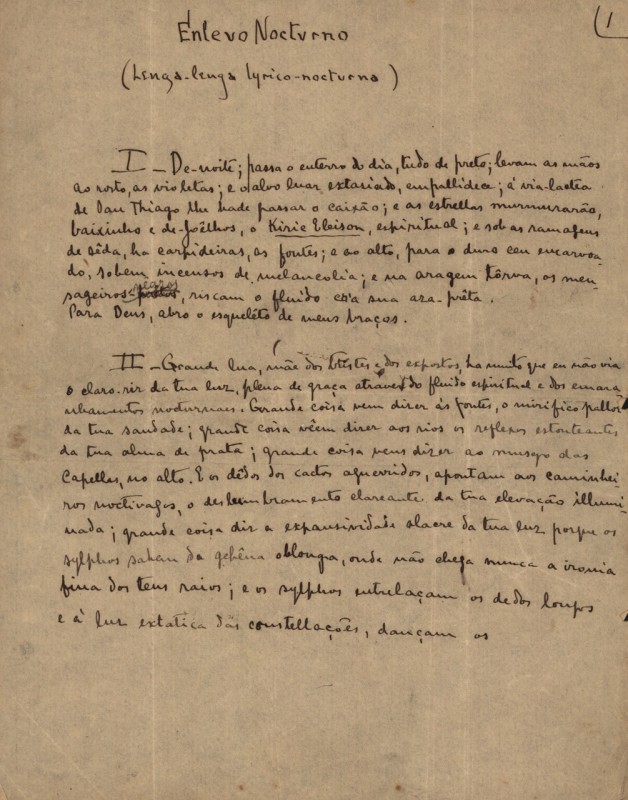 1
Enlevo Nocturno
(Lenga-lenga lyrico-nocturna)
I - De-noite; passa o enterro do dia, tudo de preto; levam as mãos
ao rosto, as violetas; e o alvo luar, extasiado, empallidece; á via-lactea
de San Thiago lhe hade passar o caixão; e as estrellas murmurarão,
baixinho e de-joêlhos, o Kirie Eleison, espiritual; e sob as ramagens
de sêda, ha carpideiras, as fontes; e ao alto, para o duro ceu encarvoa-
do, sobem incensos de melancolia; e na aragem tôrva, os men-
sageiros, riscam o fluido c'ôa sua aza-prêta.
Para Deus, abro o esqueléto de meus braços.
II - Grande lua, mãe dos tristes e dos expostos, ha muito que eu não via
o claro-rir da tua luz, plena de graça atravez do fluido espiritual e dos emara-
nhamentos nocturnaes. Grande coisa vem dizer ás fontes, o mirifico pallor
da tua saudade; grande coisa vêem dizer aos rios os reflexos estonteantes
da tua alma de prata; grande coisa vens dizer ao musgo das
Capellas, no alto. E os dêdos dos cactos aguerridos, apontam aos caminhei-
ros noctivagos, o deslumbramento clareante da tua elevação illumi-
nada; grande coisa diz a expansividade alacre da tua luz porque os
sylphos sahem da gehêna oblonga, onde não chega nunca a ironia
fina dos teus raios; e os sylphos entrelaçam os dedos longos
e à luz extatica das constellações, dançam os